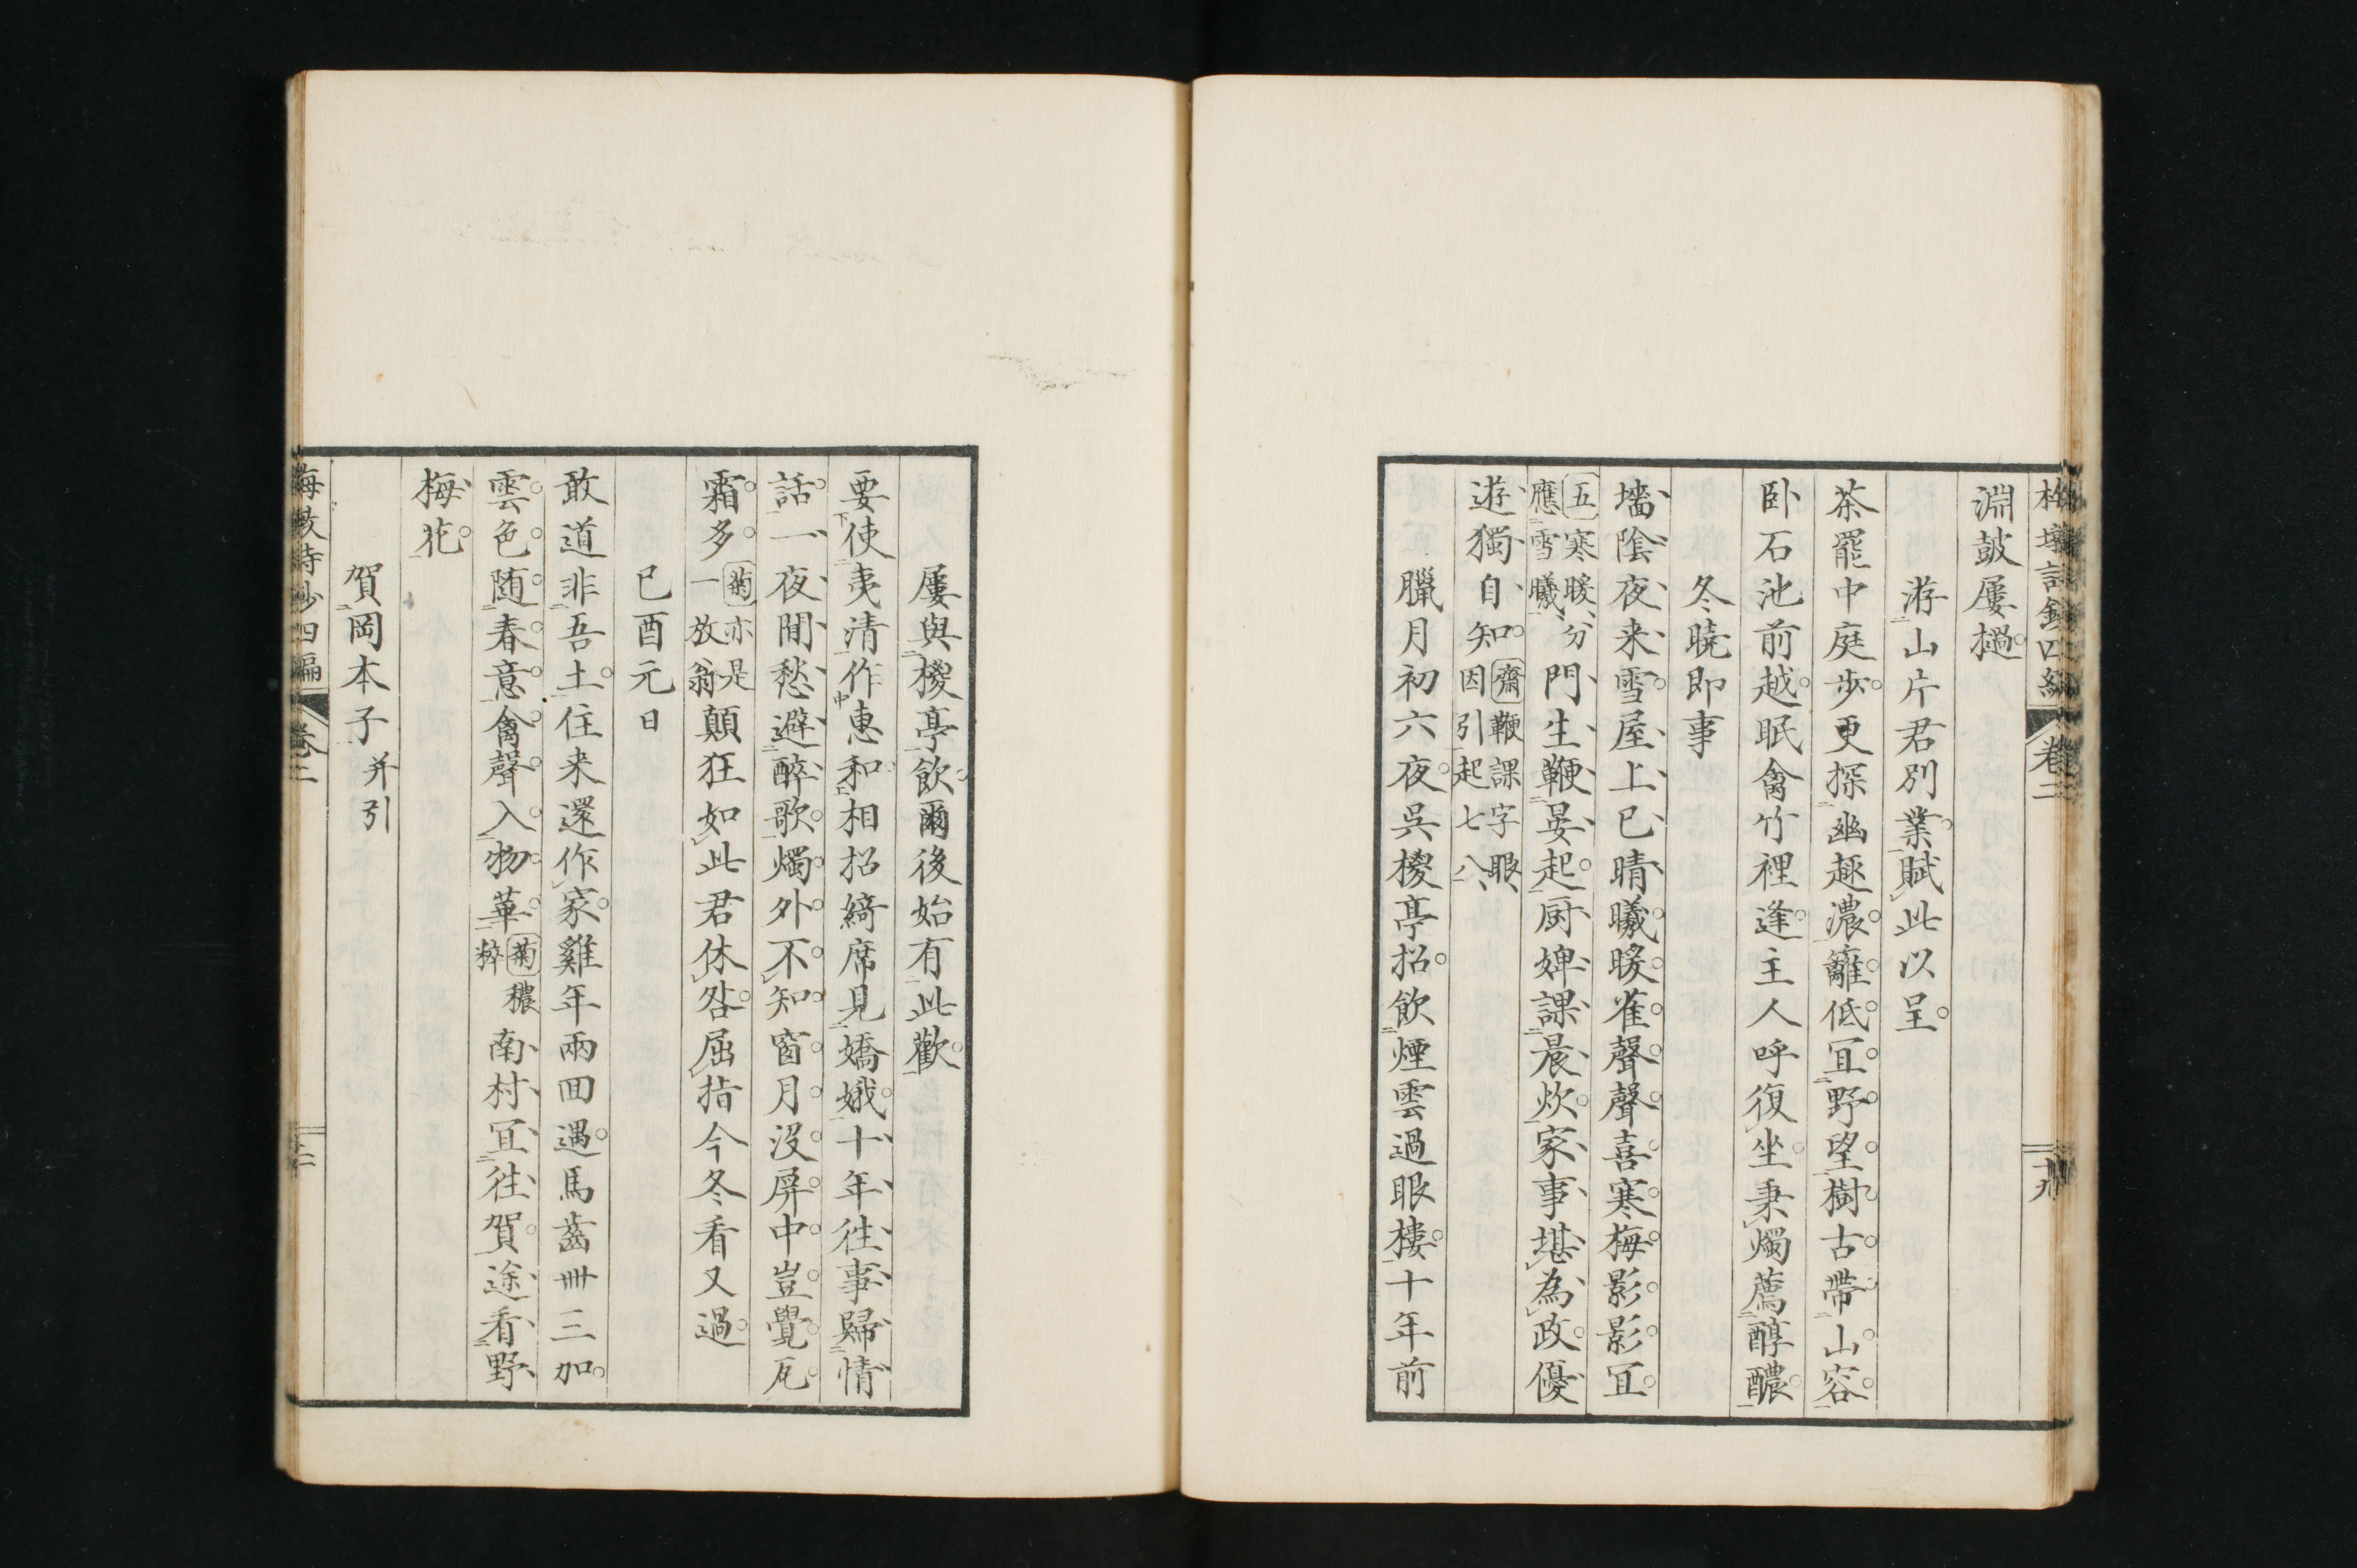 淵鼓屢撾
游山片君別業賦此以呈
茶罷中庭步更探幽趣濃籬低冝野望樹古帶山容
卧石池前越眠禽竹裡逢主人呼復坐秉燭薦醇醲
冬曉即事
墻陰夜来雪屋上已晴曦暖雀聲聲喜寒梅影影冝
五寒暖分
應雪曦
門生鞭晏起厨婢課晨炊家事堪為政優
遊獨自知
齋鞭課字眼
因引起七八
臘月初六夜呉櫻亭招飲煙雲過眼樓十年前
屢與櫻亭飲爾後始有此歡
要使夷清作惠和相招綺席見嬌娥十年往事歸情
話一夜閒愁避醉歌燭外不知窗月沒屏中豈覺瓦
霜多
菊亦是
一放翁
顛狂如此君休咎屈指今冬看又過
已酉元日
敢道非吾土住来還作家雞年兩回遇馬齒卌三加
雲色随春意禽聲入物華
菊穠
粹
南村冝往賀途看野
梅花
賀岡本子并引
卷二
十九